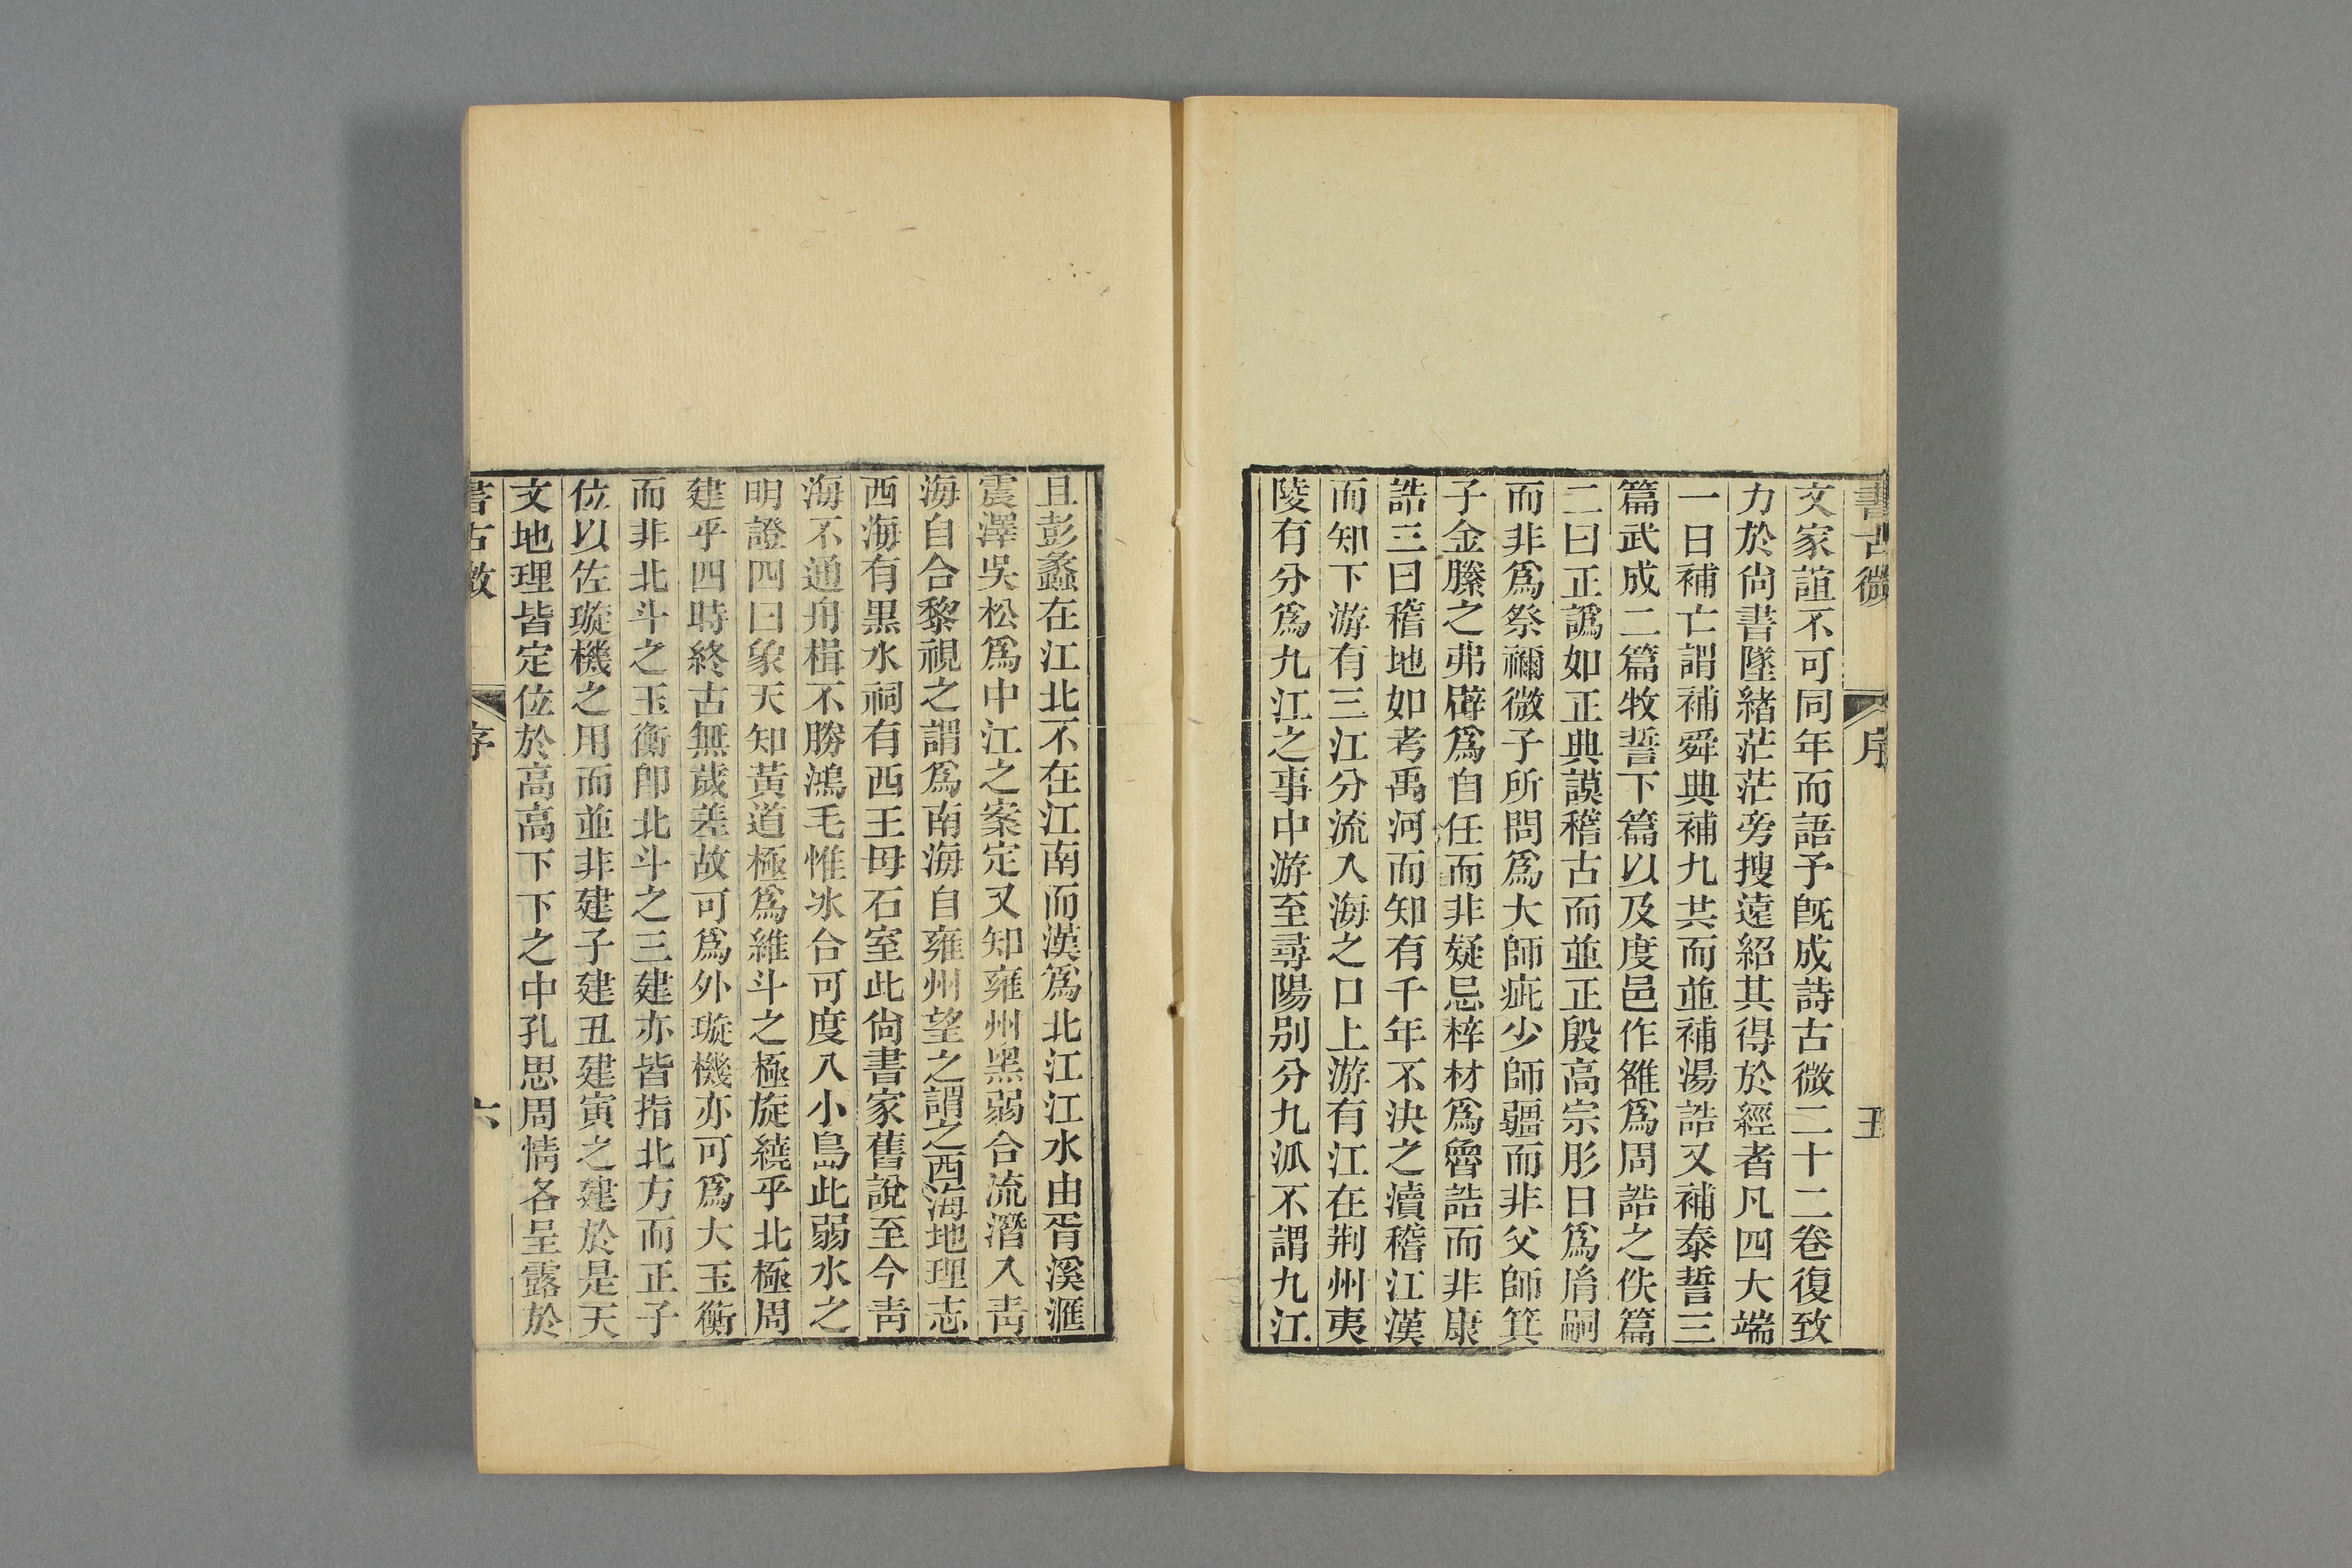 書古微
序
五
文家誼不可同年而語予旣成詩古微二十二卷復致
力於尙書墜緒茫茫旁搜遠紹其得於經者凡四大端
一曰補亡謂補舜典補九共而並補湯誥又補泰誓三
篇武成二篇牧誓下篇以及度邑作雒爲周誥之佚篇
二曰正譌如正典謨稽古而並正殷高宗肜日爲胤嗣
而非爲祭禰微子所問爲大師疵少師彊而非父師箕
子金縢之弗辟爲自任而非疑忌梓材爲魯誥而非康
誥三曰稽地如考禹河而知有千年不決之瀆稽江漢
而知下游有三江分流入海之口上游有江在荆州夷
陵有分爲九江之事中游至尋陽別分九派不謂九江
且彭蠡在江北不在江南而漢爲北江江水由胥溪滙
震澤吳松爲中江之案定又知雍州黑弱合流潛入靑
海自合黎視之謂爲南海自雍州望之謂之西海地理志
西海有黑水祠有西王母石室此尙書家舊說至今靑
海不通舟楫不勝鴻毛惟氷合可度入小島此弱水之
明證四曰象天知黃道極爲維斗之極旋繞乎北極周
建乎四時終古無歲差故可爲外璇機亦可爲大玉衡
而非北斗之玉衡卽北斗之三建亦皆指北方而正子
位以佐璇機之用而並非建子建丑建寅之建於是天
文地理皆定位於高高下下之中孔思周情各呈露於
書古微
序
六